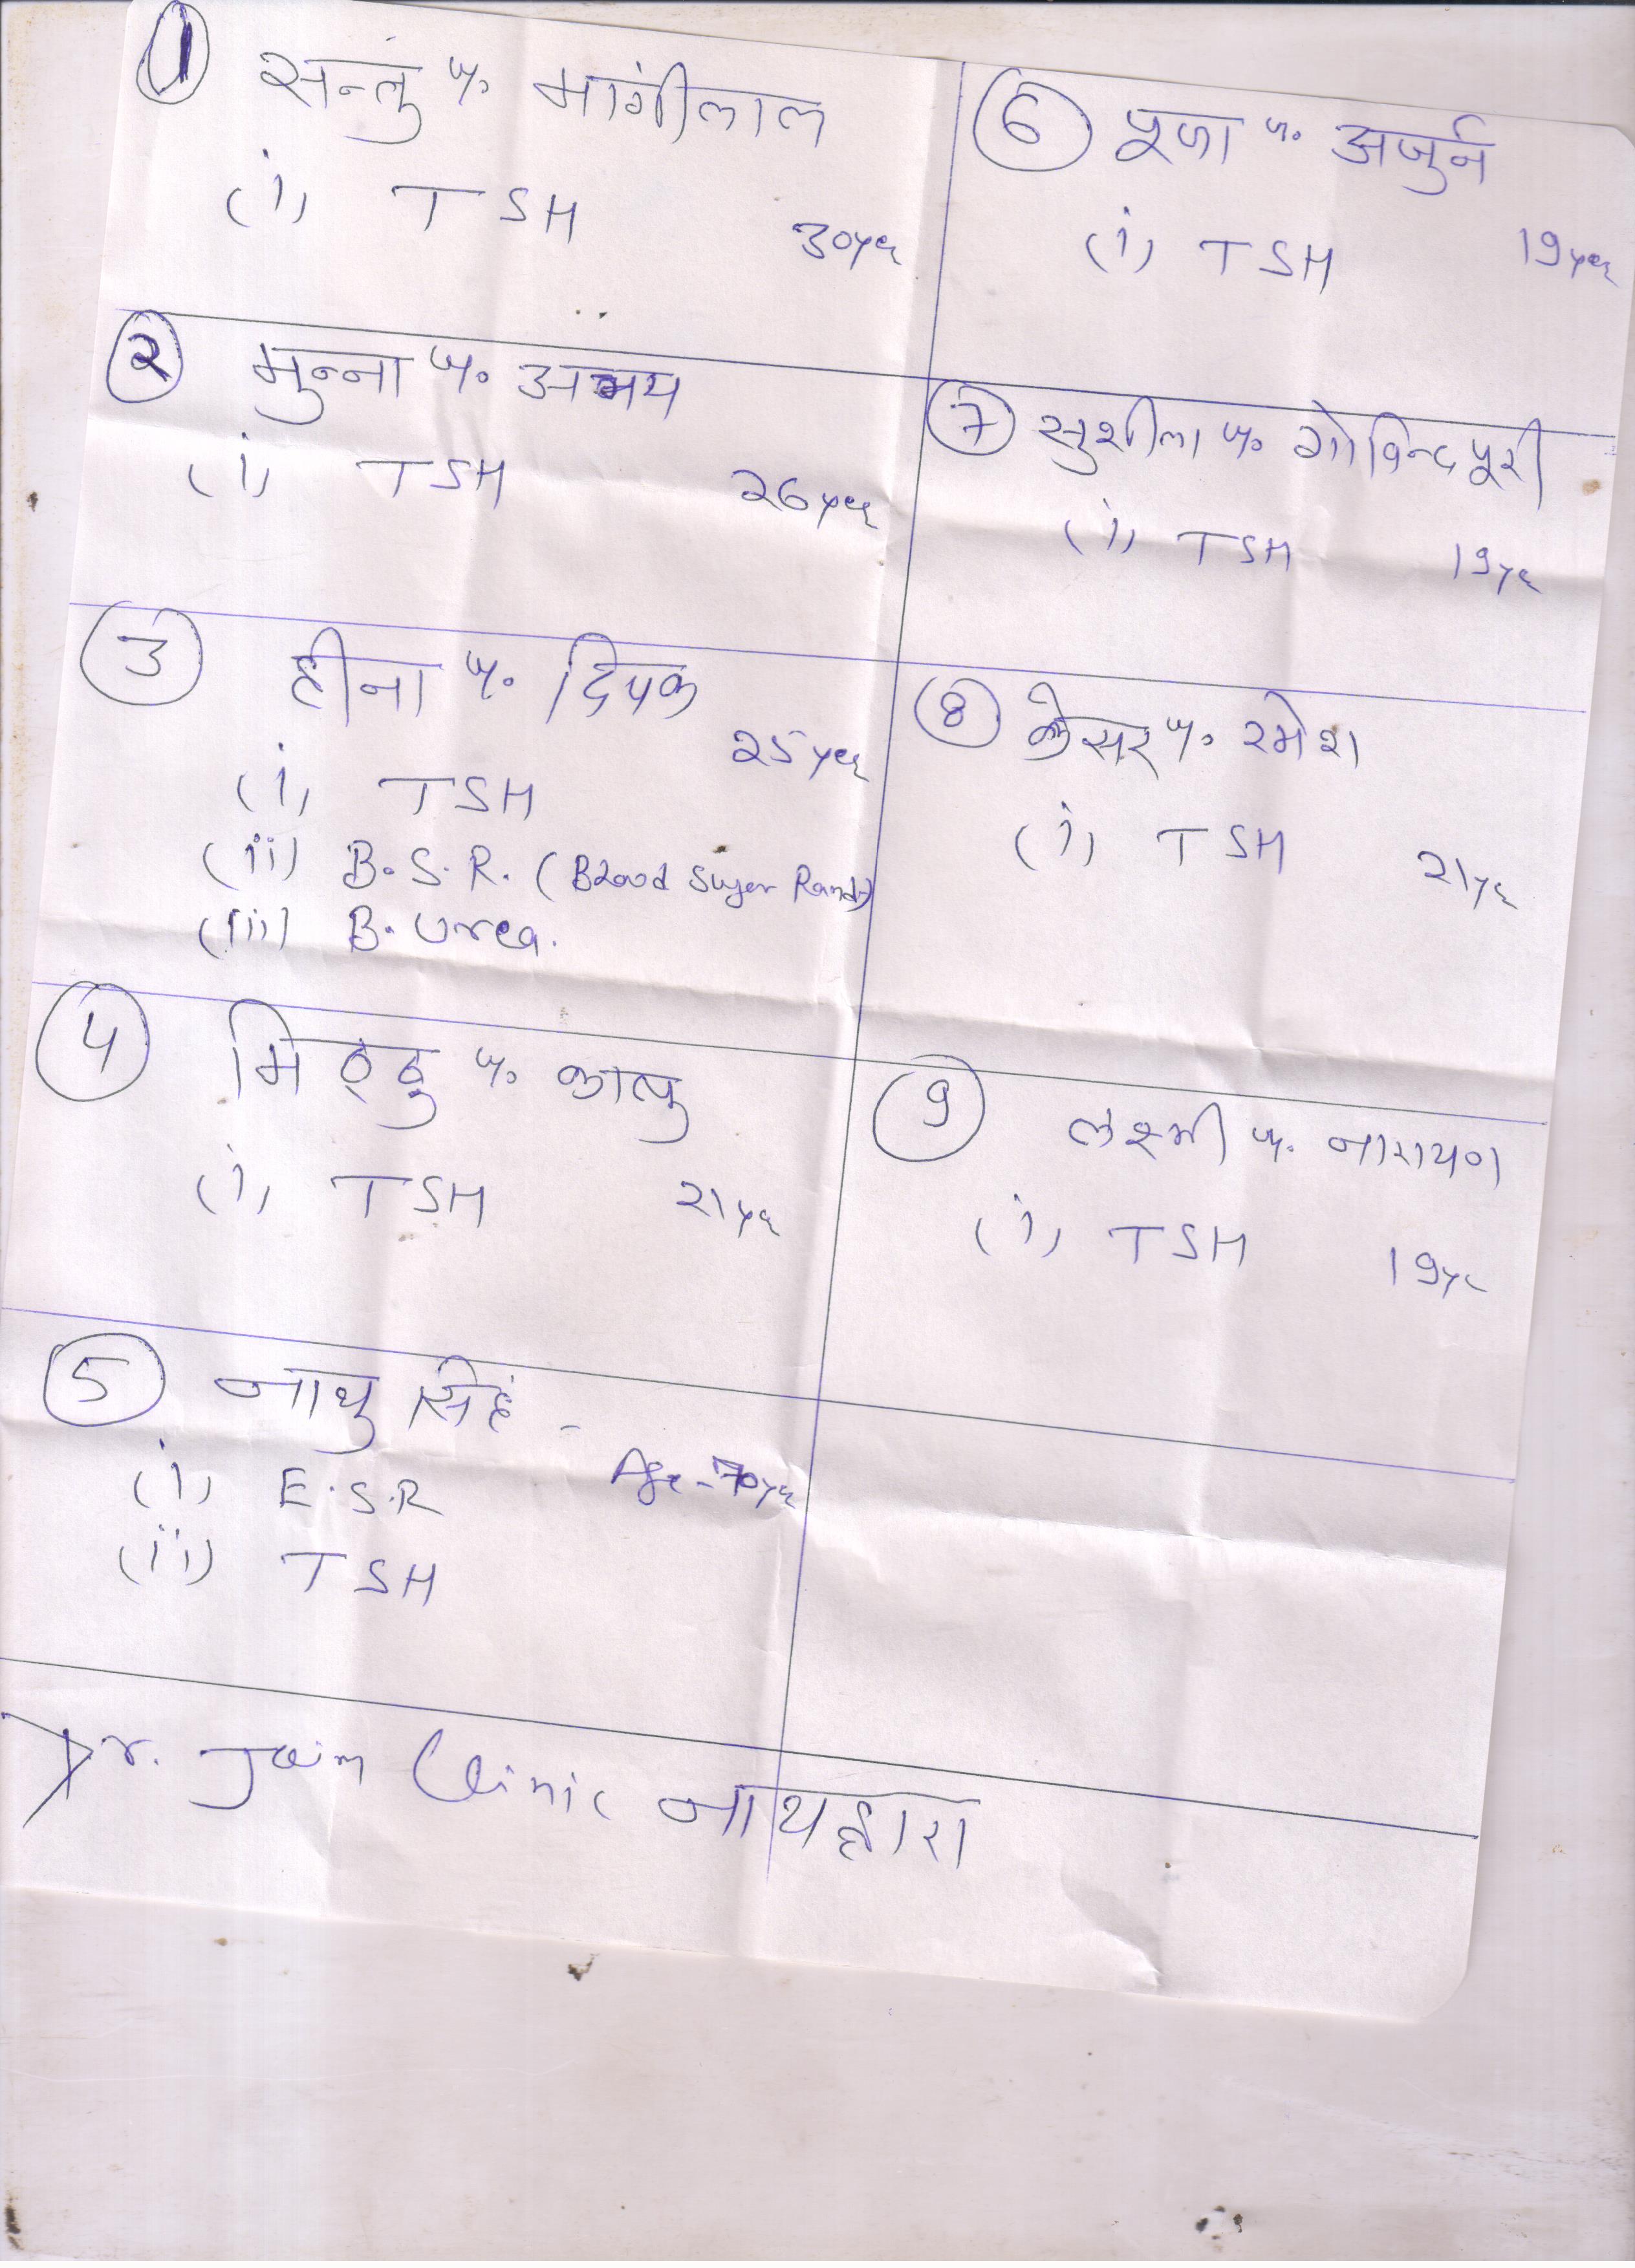 1 सन्तु प. मांगीलाल
(i) TSH 30yer
2 मुन्ना प. अभय
(i) TSH 26yer
3 हीना प. दिपक
25yer
(i) TSH
(ii) B.S.R. (Blood Suger Rand)
(iii) B. Urea.
4 मिठ्ठु प. कालु
(i) TSH 21yr
5 नाथु सिहं -
(i) E.S.R Age - 70yr
(ii) TSH
6 पूजा प. अर्जुन
(i) TSH 19yer
7 सुशीला प. गोविन्दपूरी
(i) TSH 19yr
8 केसर प. रमेश
(i) TSH 21yr
9 लक्ष्मी प. नारायण
(i) TSH 19yr
Dr. Jain Clinic नाथद्वारा